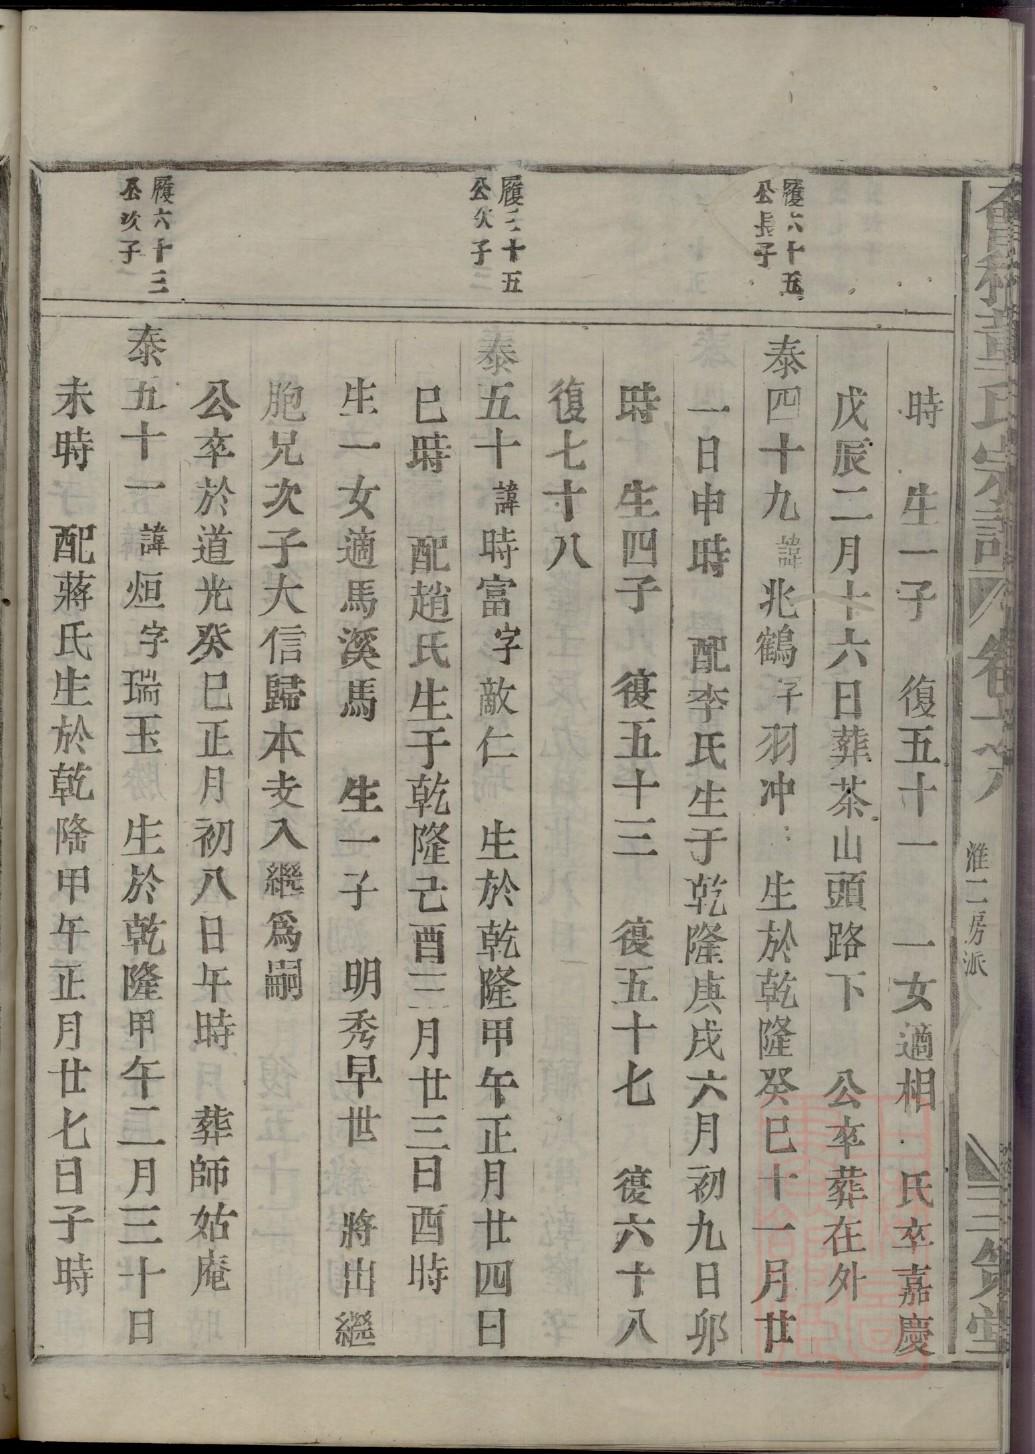 宗譜 卷十六
淮二房派
三策堂
時 生一子 復五十一 一女適相 氏卒嘉慶
戊辰二月十六日葬茶山頭路下 公卒葬在外
履六十五
公長子
泰四十九諱兆鶴字羽冲 生於乾隆癸巳十一月廿
一日申時 配李氏生于乾隆庚戌六月初九日卯
時 生四子 復五十三 復五十七 復六十八
復七十八
履三十五
公次子
泰五十諱時富字敵仁 生於乾隆甲午正月廿四日
巳時 配趙氏生于乾隆己酉三月廿三日酉時
生一女適馬溪馬 生一子 明秀早世 將出繼
胞兄次子大信歸本支入繼爲嗣
公卒於道光癸巳正月初八日午時 葬師姑庵
履六十三
公次子
泰五十一諱烜字瑞玉 生於乾隆甲午二月三十日
未時 配蔣氏生於乾隆甲午正月廿七日子時